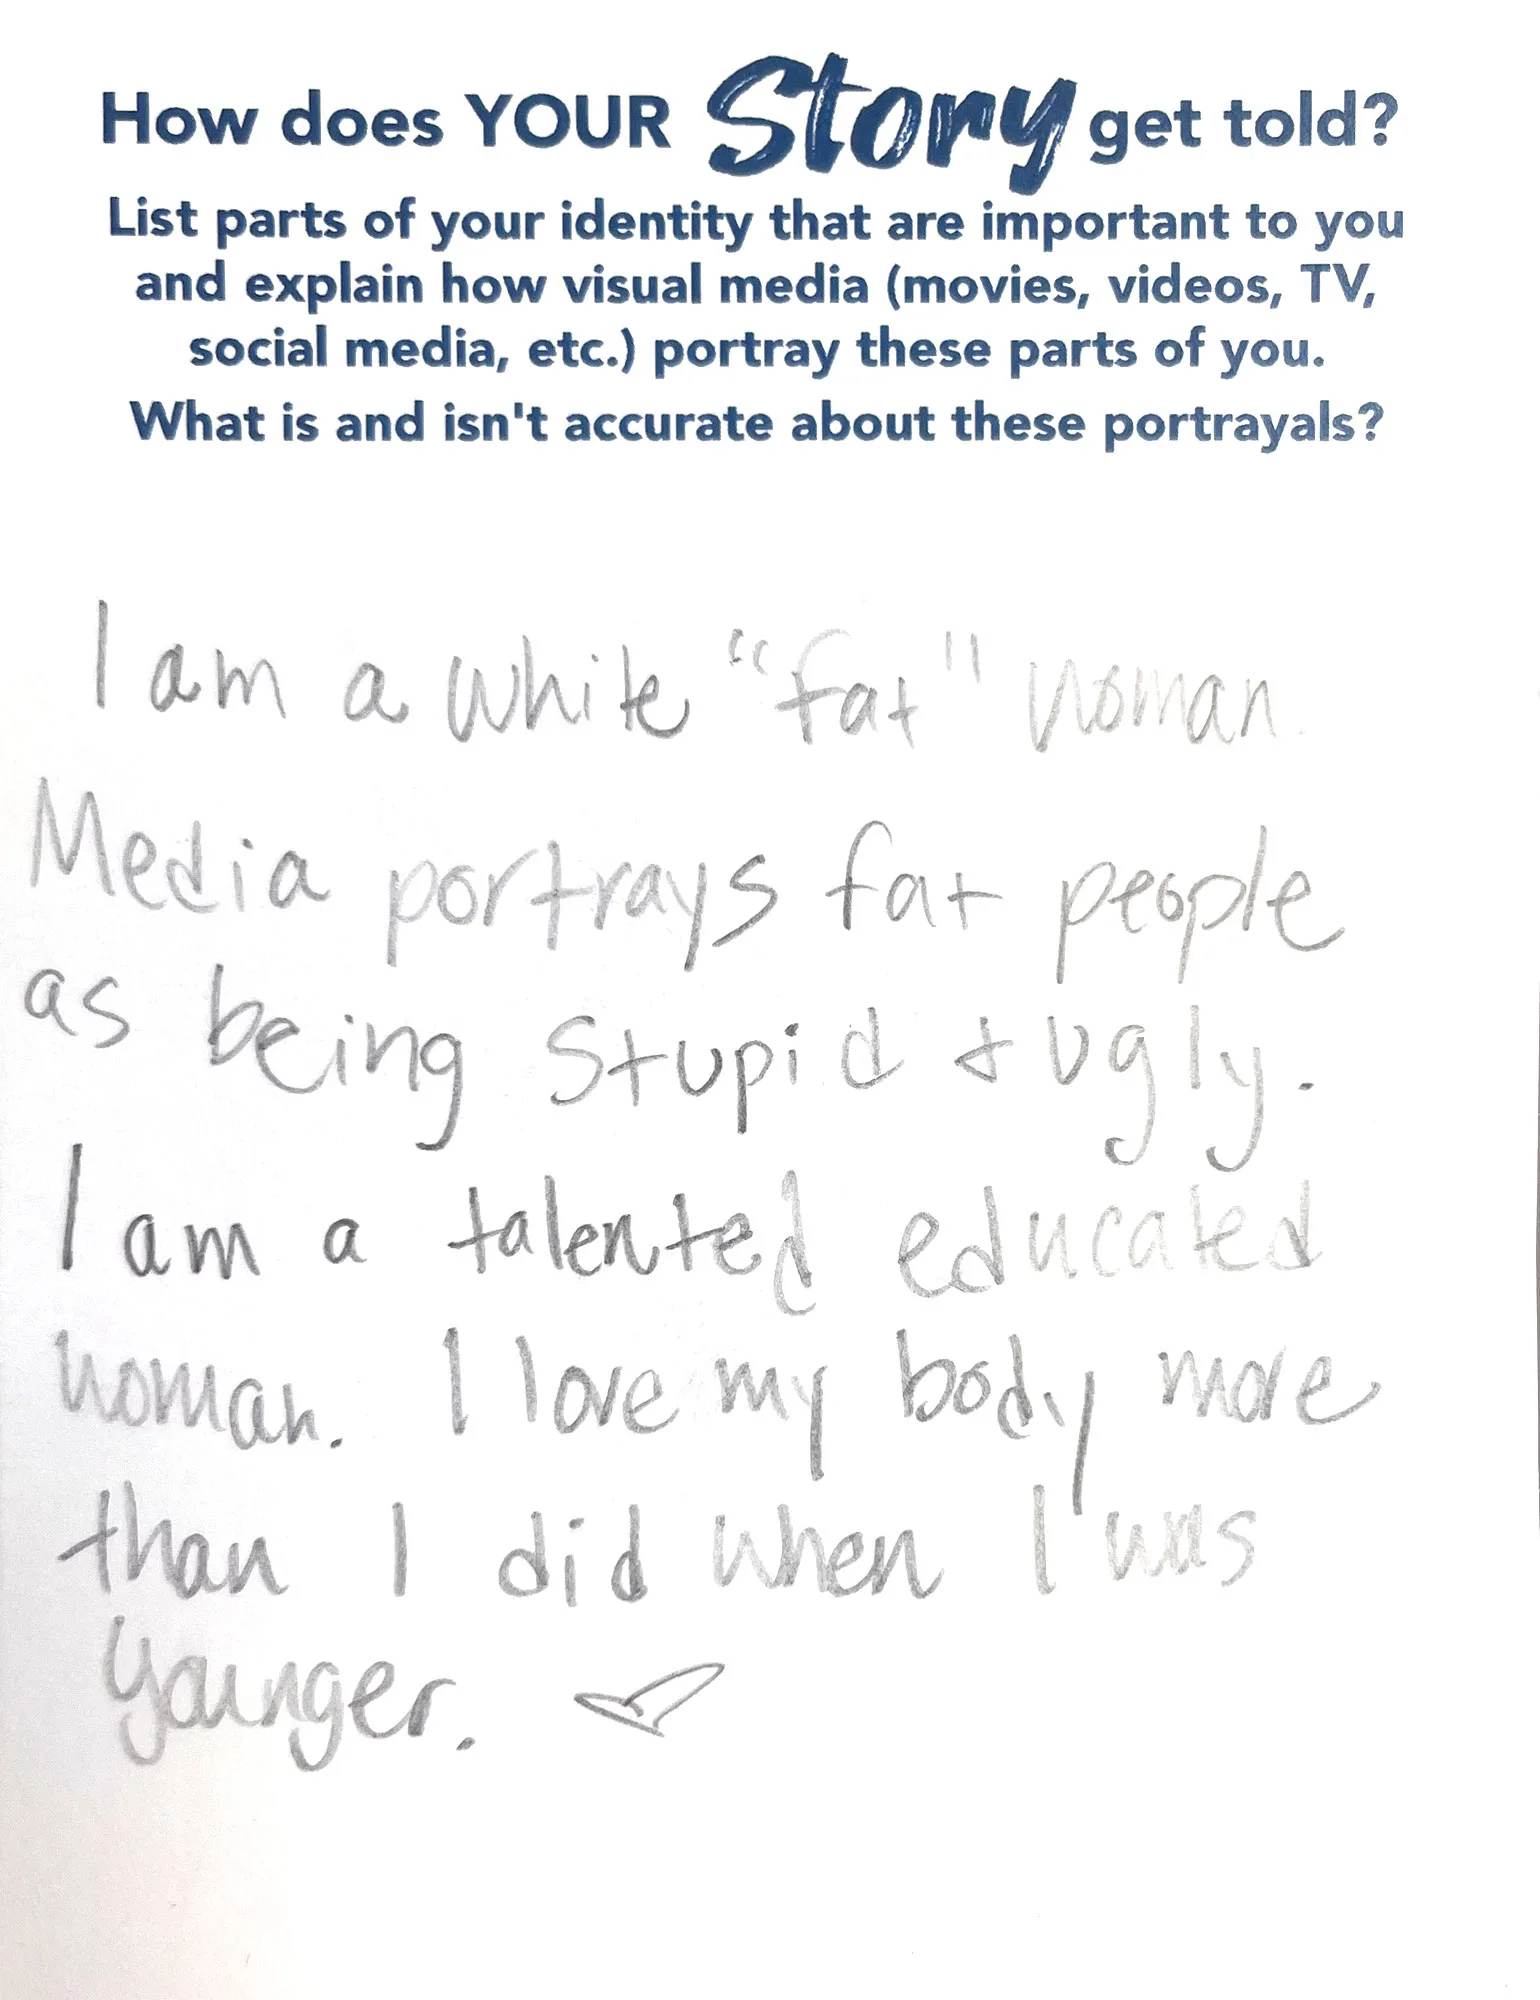 How does YOUR Story get told?
List parts of your identity that are important to you
and explain how visual media (movies, videos, TV,
social media, etc.) portray these parts of you.
What is and isn't accurate about these portrayals?
I am a white "fat" woman.
Media portrays fat people
as being stupid + ugly.
I am a talented educated
woman. I love my body more
than I did when I was
younger.